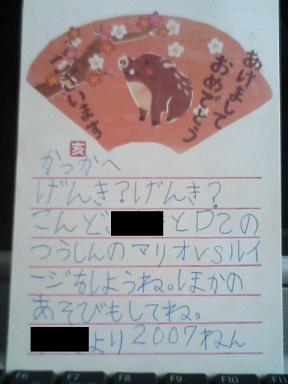 あけまして
おめでとう
ございます
亥
かっかへ
げんき?げんき?
こんど とDSの
つうしんのマリオvsルイ
ージをしようね。ほかの
あそびもしてね。
より2007ねん
F6 F7 F8 F9 F10